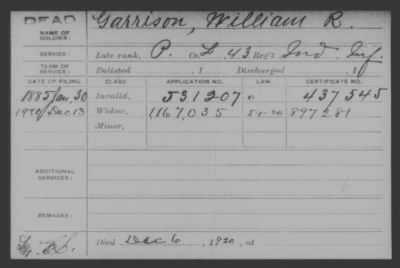 DEAD
NAME OF SOLDIER: Garrison, William R.
SERVICE: Late rank, P. Co. F, 43 Reg't Ind. Inf.
TERM OF SERVICE: Enlisted , 1 Discharged , 1
DATE OF FILING. CLASS. APPLICATION NO. LAW. CERTIFICATE NO.
1885 Jan. 30 Invalid, 531207 437545
1920 Dec 13 Widow, 1167,035 5-1-20 897281
Minor,
ADDITIONAL SERVICES:
REMARKS:
Died Dec 6, 1920, at